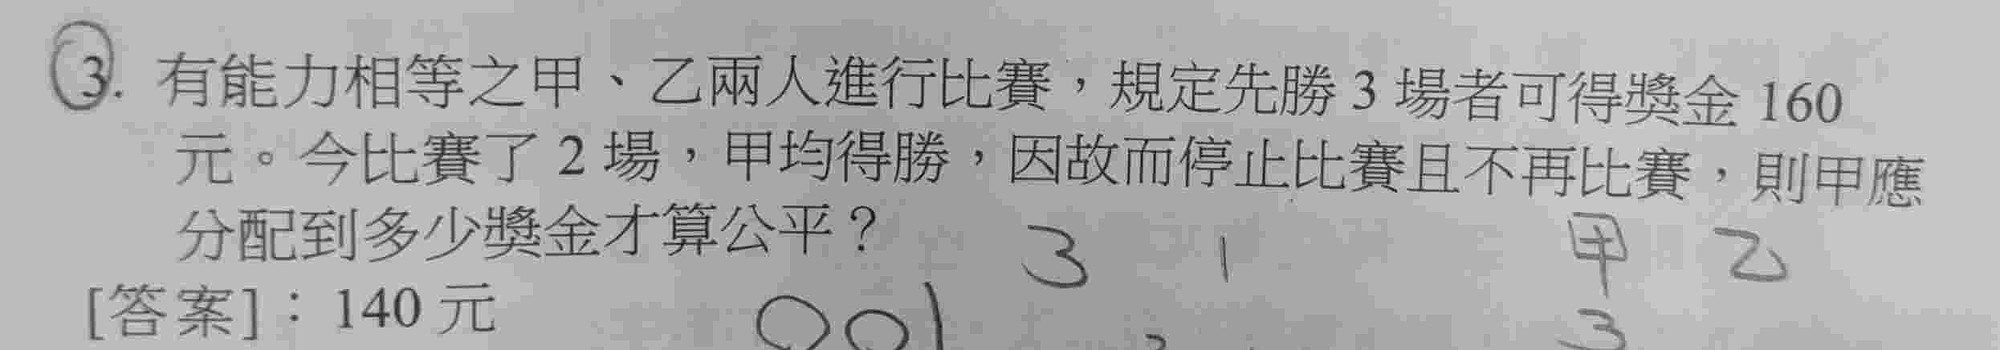 3. 有能力相等之甲、乙兩人進行比賽，規定先勝 3 場者可得獎金 160
元。今比賽了 2 場，甲均得勝，因故而停止比賽且不再比賽，則甲應
分配到多少獎金才算公平？
3 1 甲 乙
[答案]：140 元
001 3